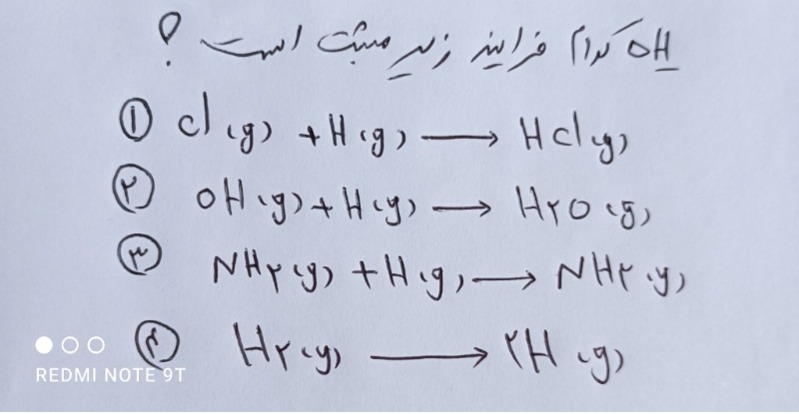 ΔH کدام فرایند زیر مثبت است ؟
① Cl(g) + H(g) → HCl(g)
② OH(g) + H(g) → H۲O(g)
③ NH۲(g) + H(g) → NH۳(g)
④ H۲(g) → ۲H(g)
REDMI NOTE 9T